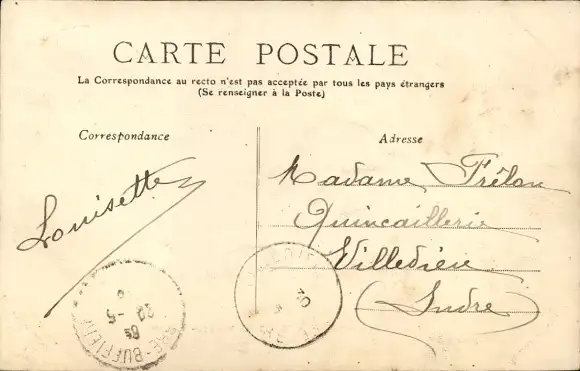 CARTE POSTALE
La Correspondance au recto n'est pas acceptée par tous les pays étrangers
(Se renseigner à la Poste)
Correspondance
Adresse
Louisette
Madame Frélon
Quincaillerie
Villedieu
(Indre)
20 -5